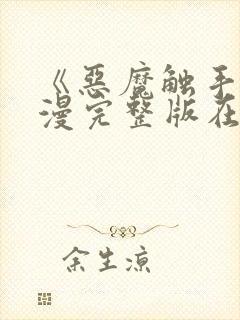 《惡魔触手
漫完整版在
余生凉